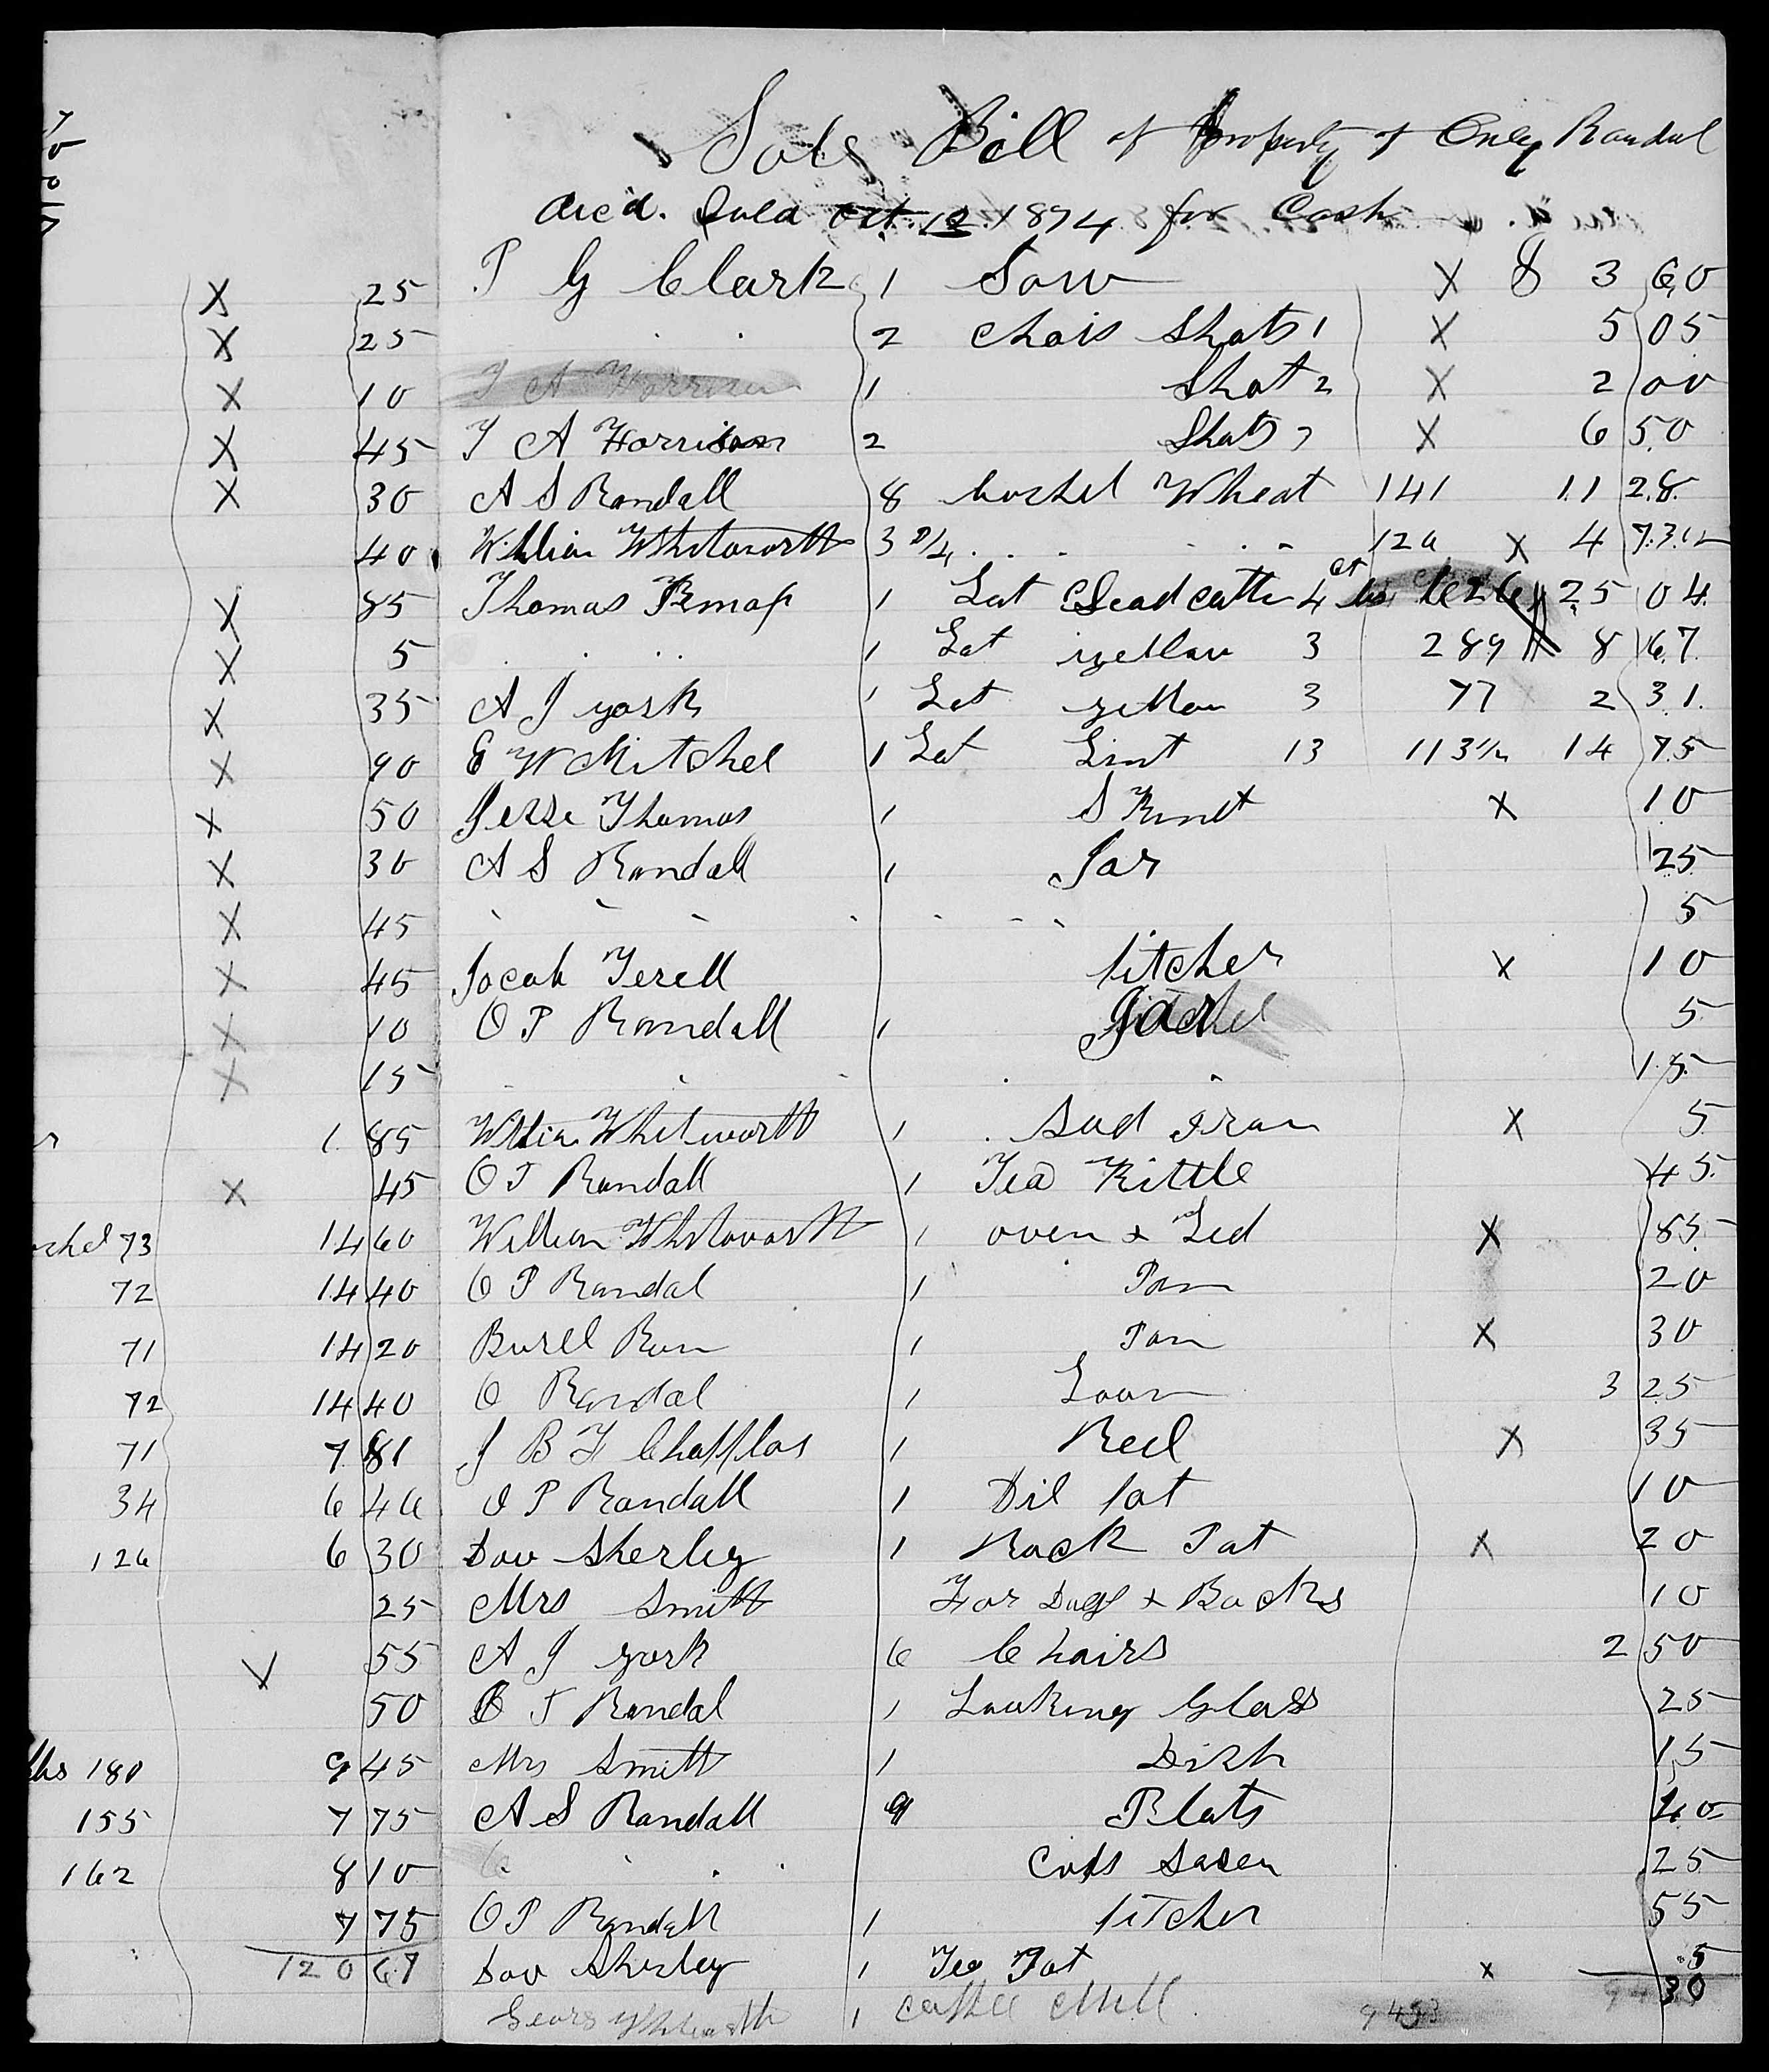 Sale Bill of Property of Oney Randal
dec'd. Sold Oct. 12 1894 for Cash
X 25 P G Clark 1 Sow X $ 3 60
X 25 . . 2 Chois Shots 1 X 5 05
X 10 T A Harrison 1 Shot 2 X 2 00
X 45 T A Harrison 2 Shots X 6 50
X 30 A S Randall 8 bushel Wheat 141 11 28
40 William Whitworth 3 3/4 . . . . X 4
X 85 Thomas 1 Lot Seed cotton 4 25 04
X 5 . . . . 1 Lot yellow 3 289 8 67
X 35 A J york 1 Lot yellow 3 77 2 31
X 90 E W Mitchel 1 Lot Lint 13 113 1/2 14 75
X 50 Jesse Thomas 1 X 10
X 30 A S Randall 1 Jar 25
X 45 . . . . . . . 5
X 45 Jacob Terell Pitcher X 10
X 10 O P Randall 1 5
X 15 . . . . . 15
1 85 William Whitworth 1 Sad Iron X 5
X 45 O P Randall 1 Tea Kittle 45
73 14 60 William Whitworth 1 oven + Led X 85
72 14 40 O P Randal 1 Pan 20
71 14 20 Burell 1 Pan X 30
72 14 40 O Randal 1 Loom 3 25
71 7 81 J B F 1 Reel X 35
34 6 40 O P Randall 1 Oil Pot 10
126 6 30 Dow Sherley 1 Rock Pot X 20
25 Mrs Smith Far Dogs + Backs 10
55 A J york 6 Chairs 2 50
50 O P Randal 1 Looking Glass 25
180 9 45 Mrs Smith 1 Dish 15
155 7 75 A S Randall 9 Plats 40
162 8 10 . . . Cups Sasers 25
7 75 O P Randall 1 Pitcher 55
120 67 Dow Sherley 1 Tea Pot X 5
1 Coffee Mill 30